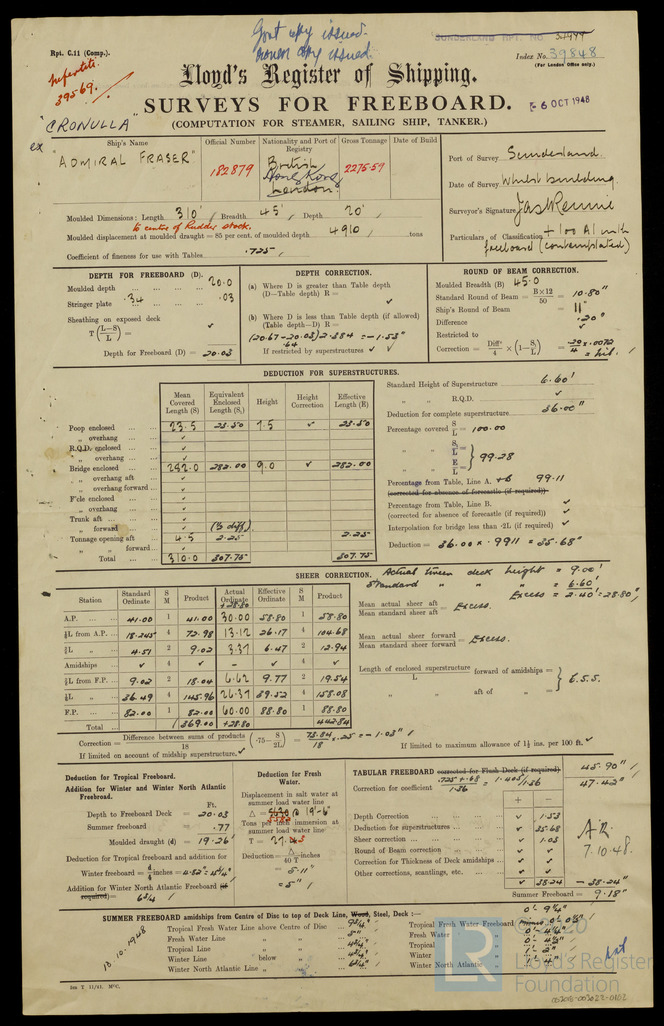 Rpt. C.11 (Comp.).
Govt copy issued.
owner copy issued.
SUNDERLAND RPT. NO
Index No. 39848
(For London Office only.)
Lloyd's Register of Shipping.
SURVEYS FOR FREEBOARD.
(COMPUTATION FOR STEAMER, SAILING SHIP, TANKER.)
39569.
- 6 OCT 1948
"CRONULLA"
ex
Ship's Name
"ADMIRAL FRASER"
Official Number
182879
Nationality and Port of Registry
British
Hong Kong
London.
Gross Tonnage
2275.59
Date of Build
Port of Survey Sunderland
Date of Survey Whilst building.
Surveyor's Signature Jas Rennie
Particulars of Classification +100 A1 with freeboard (contemplated)
Moulded Dimensions: Length 310' Breadth 45' Depth 20'
to centre of Rudder stock.
Moulded displacement at moulded draught = 85 per cent. of moulded depth 4910 tons
Coefficient of fineness for use with Tables .725
DEPTH FOR FREEBOARD (D).
Moulded depth ... 20.0
Stringer plate .34 .03
Sheathing on exposed deck
T (L-S / L) = ✓
Depth for Freeboard (D) = 20.03
DEPTH CORRECTION.
(a) Where D is greater than Table depth
(D—Table depth) R = ✓
(b) Where D is less than Table depth (if allowed)
(Table depth—D) R =
(20.67 - 20.03) 2.384 = -1.53"
.64
If restricted by superstructures ✓ ✓
ROUND OF BEAM CORRECTION.
Moulded Breadth (B) 45.0
Standard Round of Beam = B×12 / 50 = 10.80"
Ship's Round of Beam = 11"
Difference .20"
Restricted to ✓
Correction = Diffce / 4 × (1 - S/L) = .20/4 × .0072 = Nil.
DEDUCTION FOR SUPERSTRUCTURES.
Mean Covered Length (S) Equivalent Enclosed Length (S₁) Height Height Correction Effective Length (E)
Poop enclosed 23.5 23.50 7.5 ✓ 23.50
„ overhang ✓
R.Q.D. enclosed ✓
„ overhang ✓
Bridge enclosed 282.0 282.00 9.0 ✓ 282.00
„ overhang aft ✓
„ overhang forward ✓
F'cle enclosed ✓
„ overhang ✓
Trunk aft ✓
„ forward ✓ (½ diff)
Tonnage opening aft 4.5 2.25 2.25
„ „ forward ✓
Total 310.0 307.75 307.75
Standard Height of Superstructure 6.60'
„ „ R.Q.D. ✓
Deduction for complete superstructure 36.00"
Percentage covered S/L = 100.00
„ „ S₁/L =
„ „ E/L = } 99.28
Percentage from Table, Line A. 99.11
(corrected for absence of forecastle (if required))
Percentage from Table, Line B. ✓
(corrected for absence of forecastle (if required)) ✓
Interpolation for bridge less than .2L (if required) ✓
Deduction = 36.00 × .9911 = 35.68"
SHEER CORRECTION.
Actual tween deck height = 9.00'
Standard „ „ „ = 6.60'
Excess = 2.40' = 28.80"
Station Standard Ordinate S M Product Actual Ordinate Effective Ordinate S M Product
+28.80
A.P. 41.00 1 41.00 30.00 58.80 1 58.80
⅙L from A.P. 18.245 4 72.98 13.12 26.17 4 104.68
⅓L „ 4.51 2 9.02 3.37 6.47 2 12.94
Amidships ✓ 4 ✓ - ✓ 4 ✓
⅓L from F.P. 9.02 2 18.04 6.62 9.77 2 19.54
⅙L „ 36.49 4 145.96 26.37 39.52 4 158.08
F.P. 82.00 1 82.00 60.00 88.80 1 88.80
Total 369.00 +28.80 442.84
Mean actual sheer aft / Mean standard sheer aft = Excess.
Mean actual sheer forward / Mean standard sheer forward = Excess.
Length of enclosed superstructure / L forward of amidships =
„ aft of „ = } E.S.S.
Correction = Difference between sums of products / 18 (.75 - S/2L) = 73.84/18 × .25 = -1.03"
If limited on account of midship superstructure. ✓
If limited to maximum allowance of 1½ ins. per 100 ft. ✓
Deduction for Tropical Freeboard.
Addition for Winter and Winter North Atlantic Freeboard.
Ft.
Depth to Freeboard Deck = 20.03
Summer freeboard = .77
Moulded draught (d) = 19.26
Deduction for Tropical freeboard and addition for
Winter freeboard = d/4 inches = 4.82" = 4¾"
Addition for Winter North Atlantic Freeboard (if required) = 6¾"
Deduction for Fresh Water.
Displacement in salt water at summer load water line
Δ = @ 19'-6"
Tons per inch immersion at summer load water line
T = 27.
Deduction = Δ / 40 T inches
= 5.11"
= 5"
TABULAR FREEBOARD corrected for Flush Deck (if required) 45.90"
Correction for coefficient .725 + .68 / 1.36 = 1.405 / 1.36 47.42"
+ -
Depth Correction ✓ 1.53
Deduction for superstructures ✓ 35.68
Sheer correction ✓ 1.03
Round of Beam correction ✓ ✓
Correction for Thickness of Deck amidships ✓ ✓
Other corrections, scantlings, etc. ✓ ✓
✓ 38.24 - 38.24"
Summer Freeboard = 9.18"
7.10.48.
SUMMER FREEBOARD amidships from Centre of Disc to top of Deck Line, Wood, Steel, Deck :— 0'- 9¼"
Tropical Fresh Water Line above Centre of Disc 9¾"
Fresh Water Line „ „ 5"
Tropical Line „ „ 4¾"
Winter Line below „ 4¾"
Winter North Atlantic Line „ „ 6¾"
Tropical Fresh Water Freeboard
Fresh Water „ 0'- 4¼"
Tropical „ 0'- 4½"
Winter „ 1'- 2"
Winter North Atlantic „ 1'- 4"
13.10.1948
© 2020
LR
Lloyd's Register
Foundation
002016-002022-0162